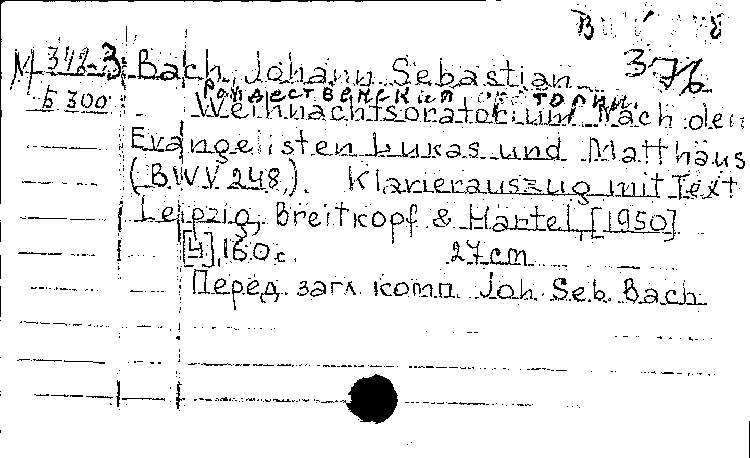 376
М 348-3 Bach, Johann Sebastian
Б 300
Weihnachtsoratorium Nach den
Evangelisten Lukas und Matthäus
(BWV 248). Klavierauszug mit Text
Leipzig, Breitkopf & Härtel, [1950]
[4], 160 с. 27 cm
Перед загл. комп. Joh. Seb. Bach